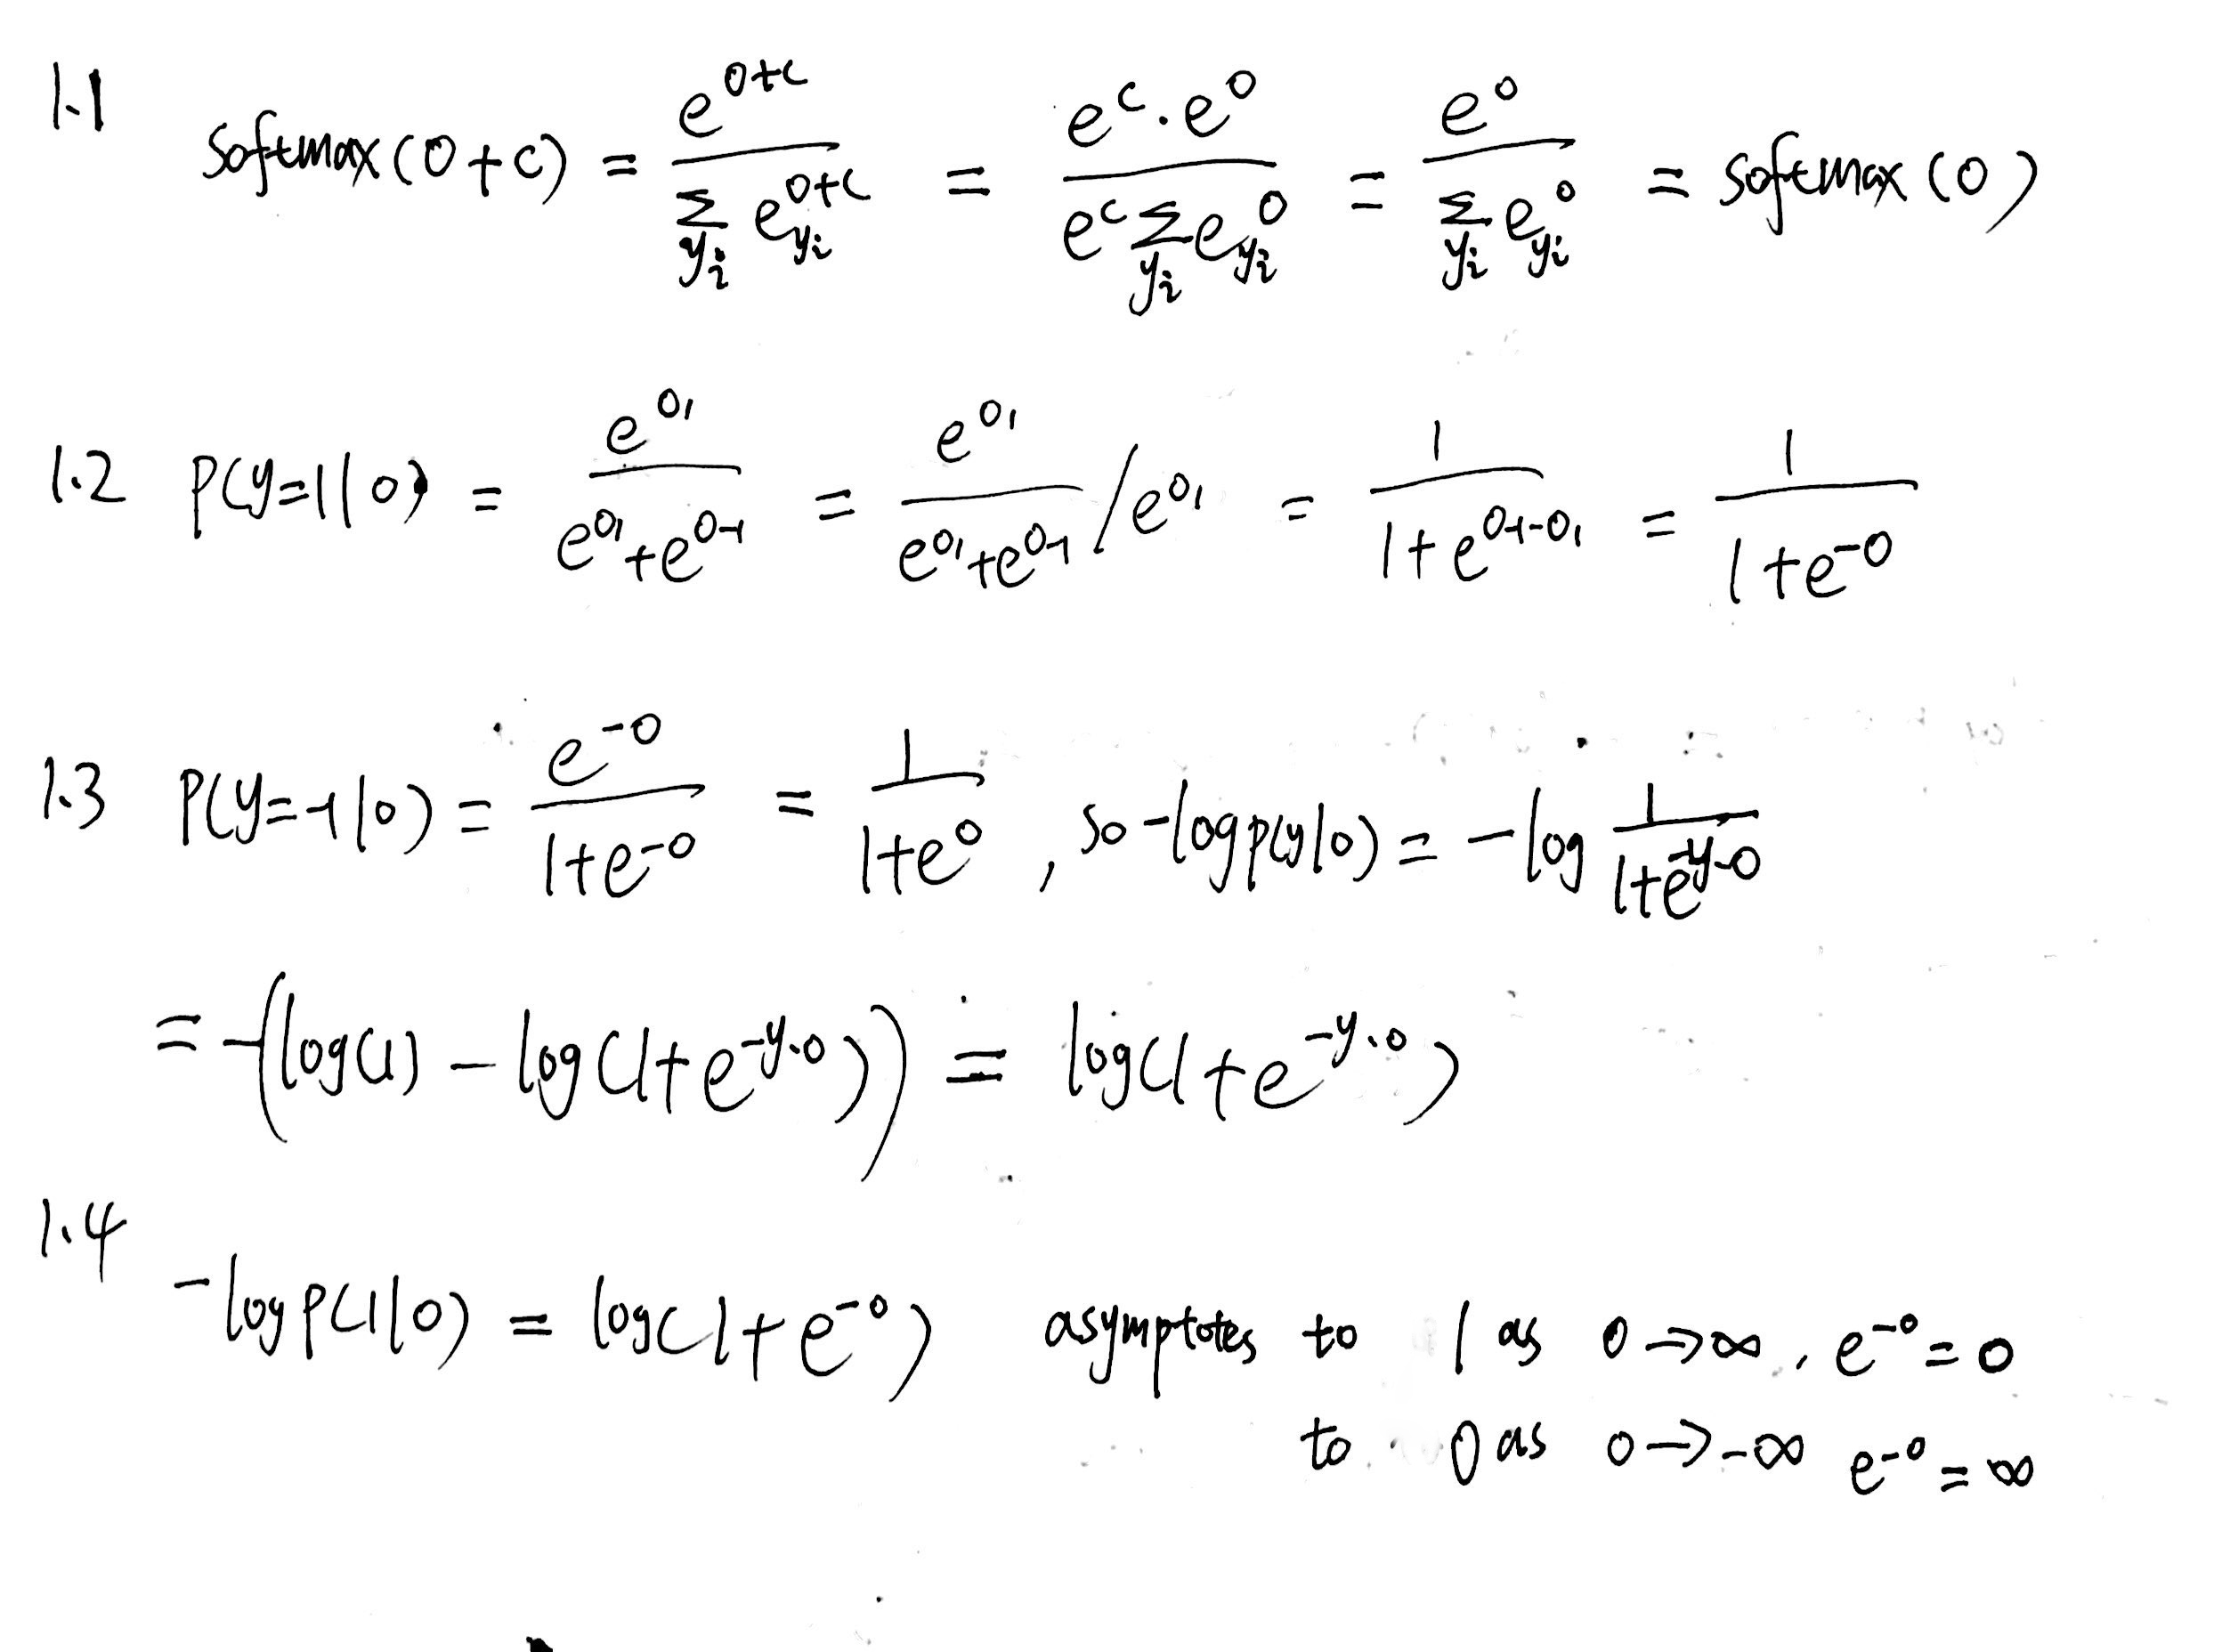 1.1 softmax(o+c) = e^{o+c} / Σ_{y_i} e_{y_i}^{o+c} = e^c · e^o / e^c Σ_{y_i} e_{y_i}^o = e^o / Σ_{y_i} e_{y_i}^o = softmax(o)
1.2 P(y=1|o) = e^{o_1} / (e^{o_1}+e^{o_{-1}}) = e^{o_1} / (e^{o_1}+e^{o_{-1}}) / e^{o_1} = 1 / (1+e^{o_{-1}-o_1}) = 1 / (1+e^{-o})
1.3 P(y=-1|o) = e^{-o} / (1+e^{-o}) = 1 / (1+e^o), so -log p(y|o) = -log 1 / (1+e^{-y·o})
= -(log(1) - log(1+e^{-y·o})) = log(1+e^{-y·o})
1.4 -log P(1|o) = log(1+e^{-o}) asymptotes to 1 as o→∞, e^{-o}=0
to 0 as o→-∞ e^{-o}=∞